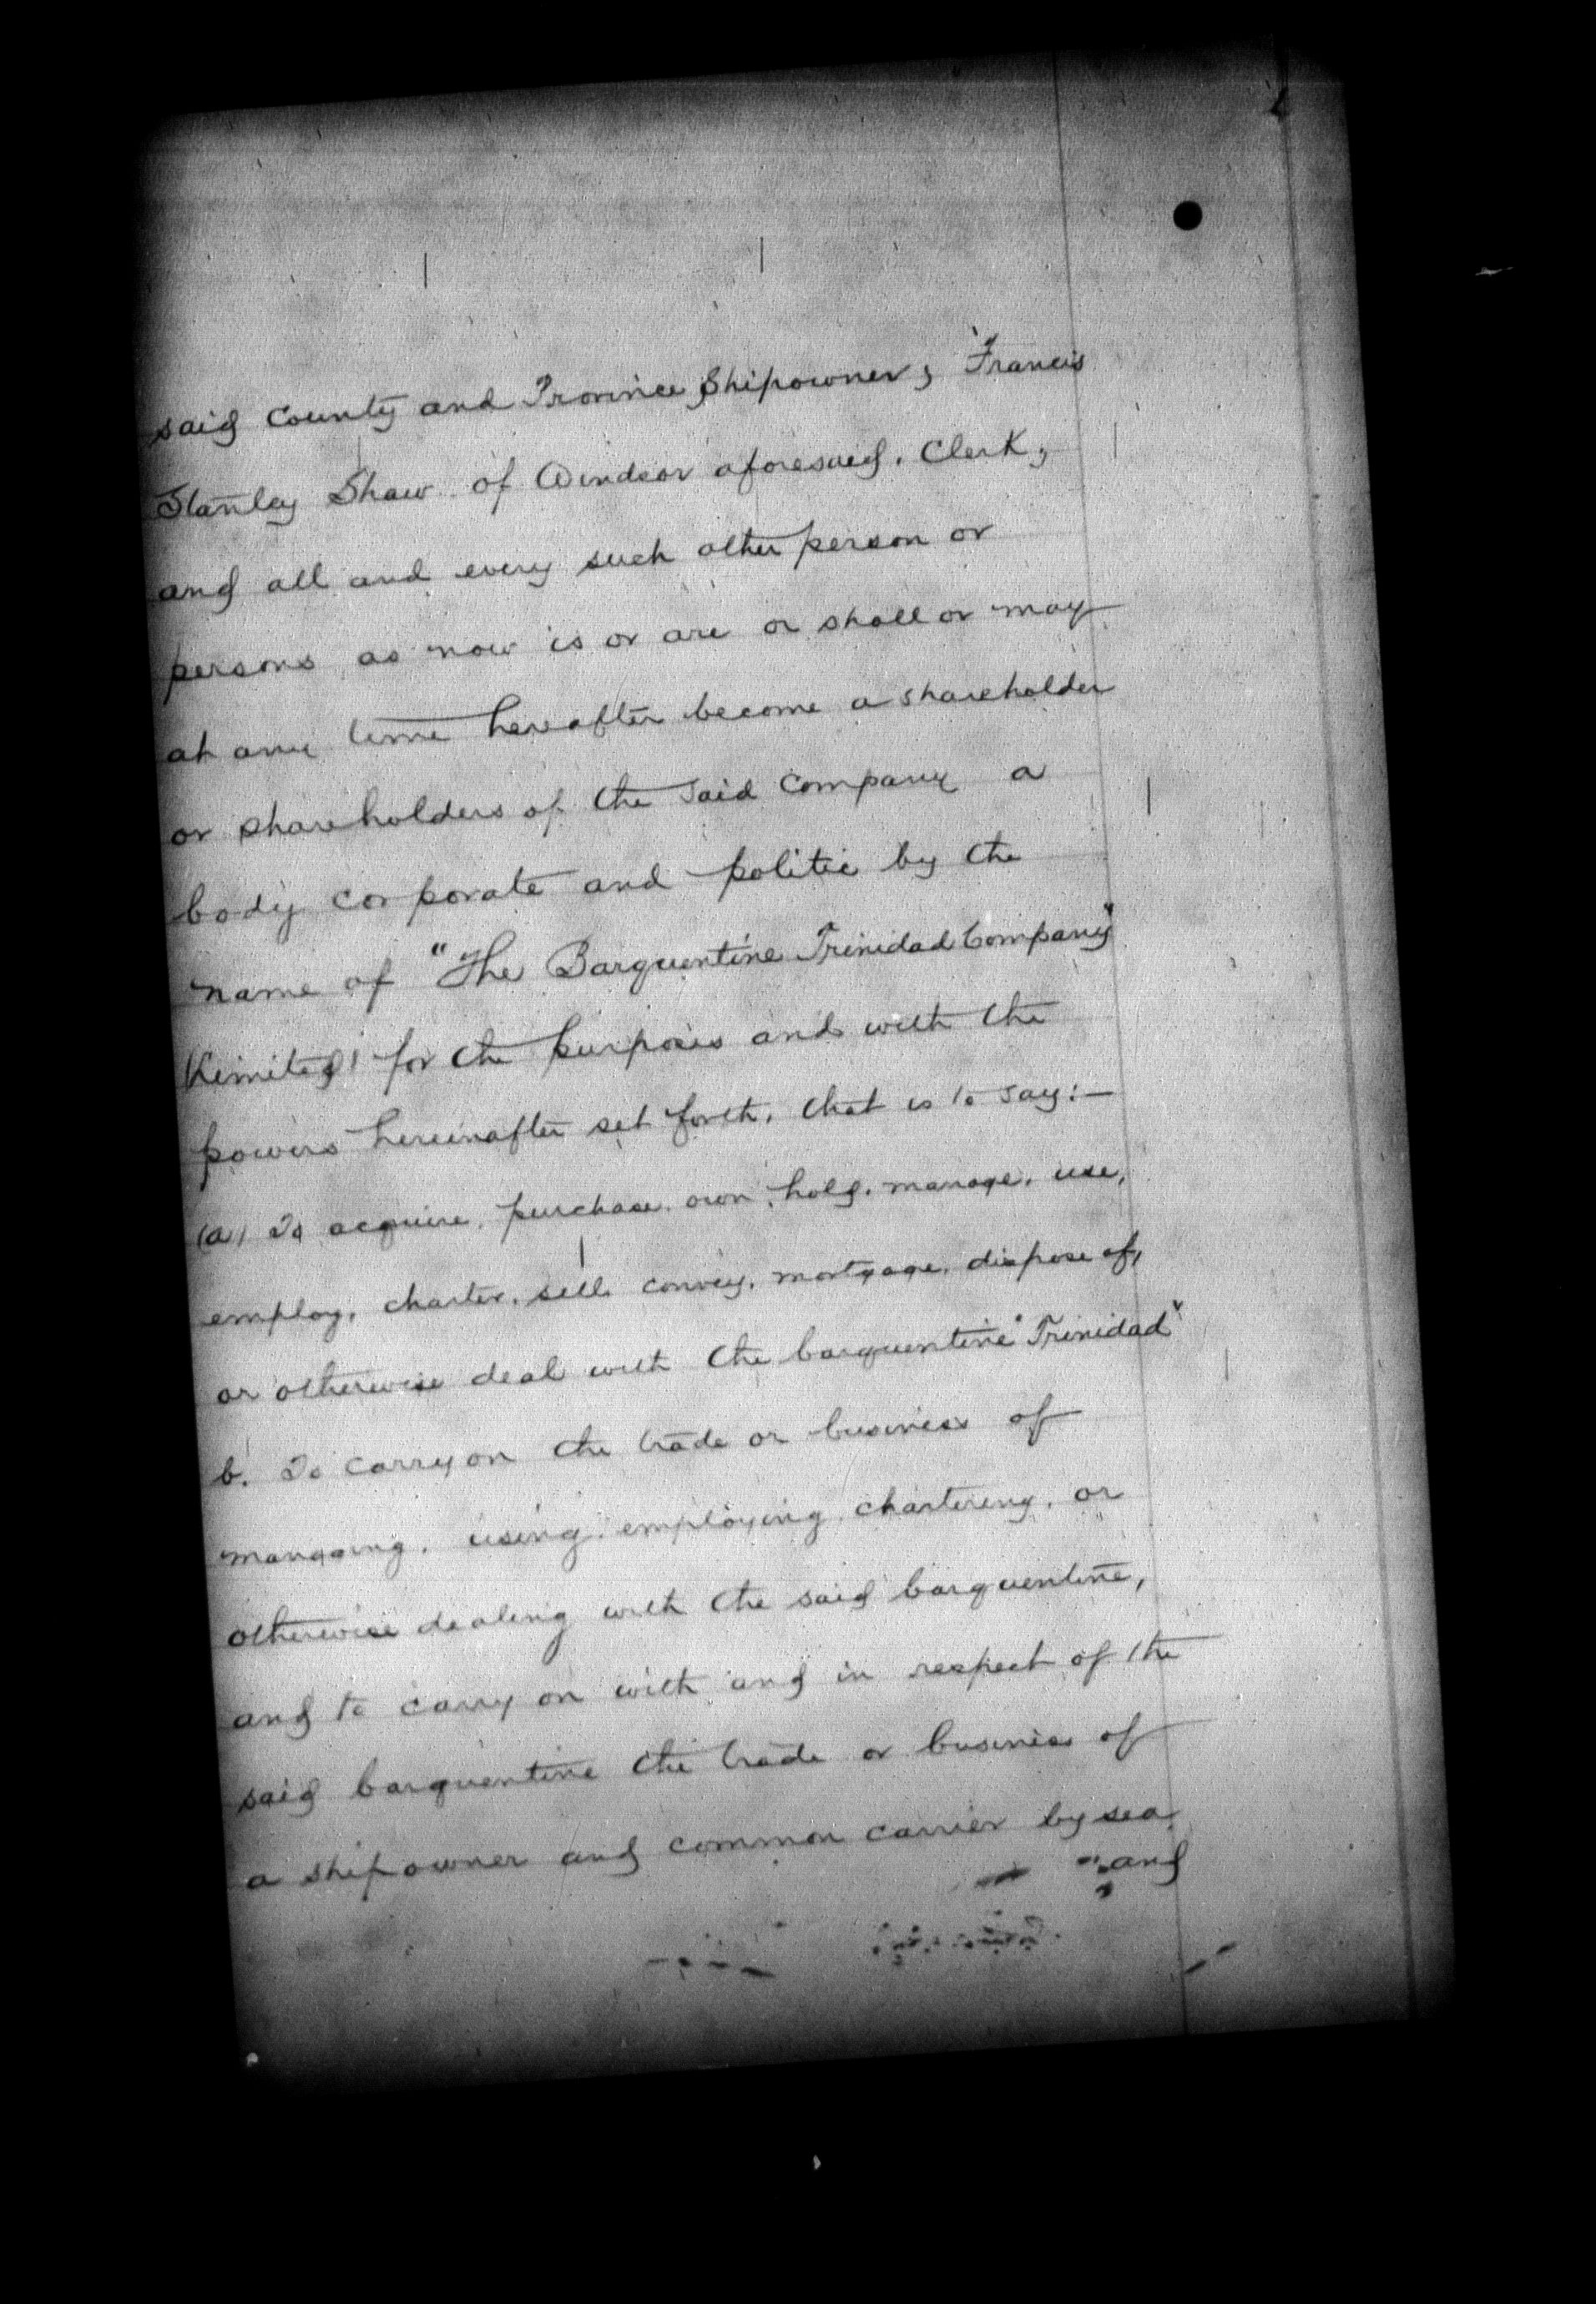 said County and Province, Shipowner, Francis
Stanley Shaw of Windsor aforesaid. Clerk,
and all and every such other person or
persons as now is or are or shall or may
at any time hereafter become a shareholder
or shareholders of the said Company a
body corporate and politic by the
name of "The Barquentine Trinidad Company"
Limited' for the purposes and with the
powers hereinafter set forth, that is to say:—
(a) To acquire, purchase, own, hold, manage, use,
employ, charter, sell, convey, mortgage, dispose of,
or otherwise deal with the barquentine "Trinidad"
b. To carry on the trade or business of
managing, using, employing, chartering, or
otherwise dealing with the said barquentine,
and to carry on with and in respect of the
said barquentine the trade or business of
a shipowner and common carrier by sea,
and